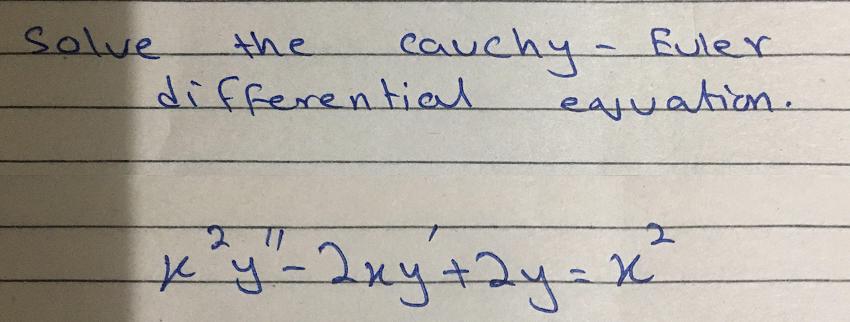 Solve the cauchy - Euler
differential equation.
x²y'' - 2xy' + 2y = x²